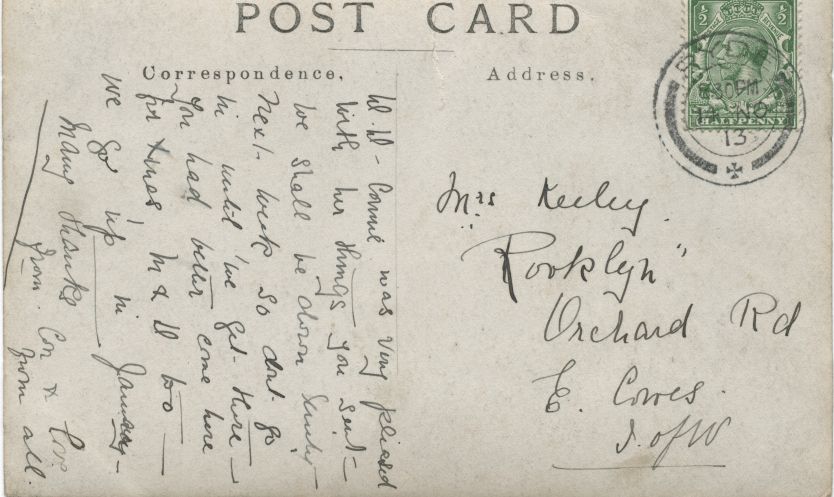 POST CARD
Correspondence.
Address.
HALFPENNY
30PM
13
Mrs Keeley.
"Rooklyn"
Orchard Rd
E. Cowes.
I. of W
W. D - Connie was very pleased
with her things you sent -
we shall be down
next week so dont go
in until we get there -
you had better come here
for Xmas M & D too -
we go up in January -
Many thanks
from Con & love
from all.